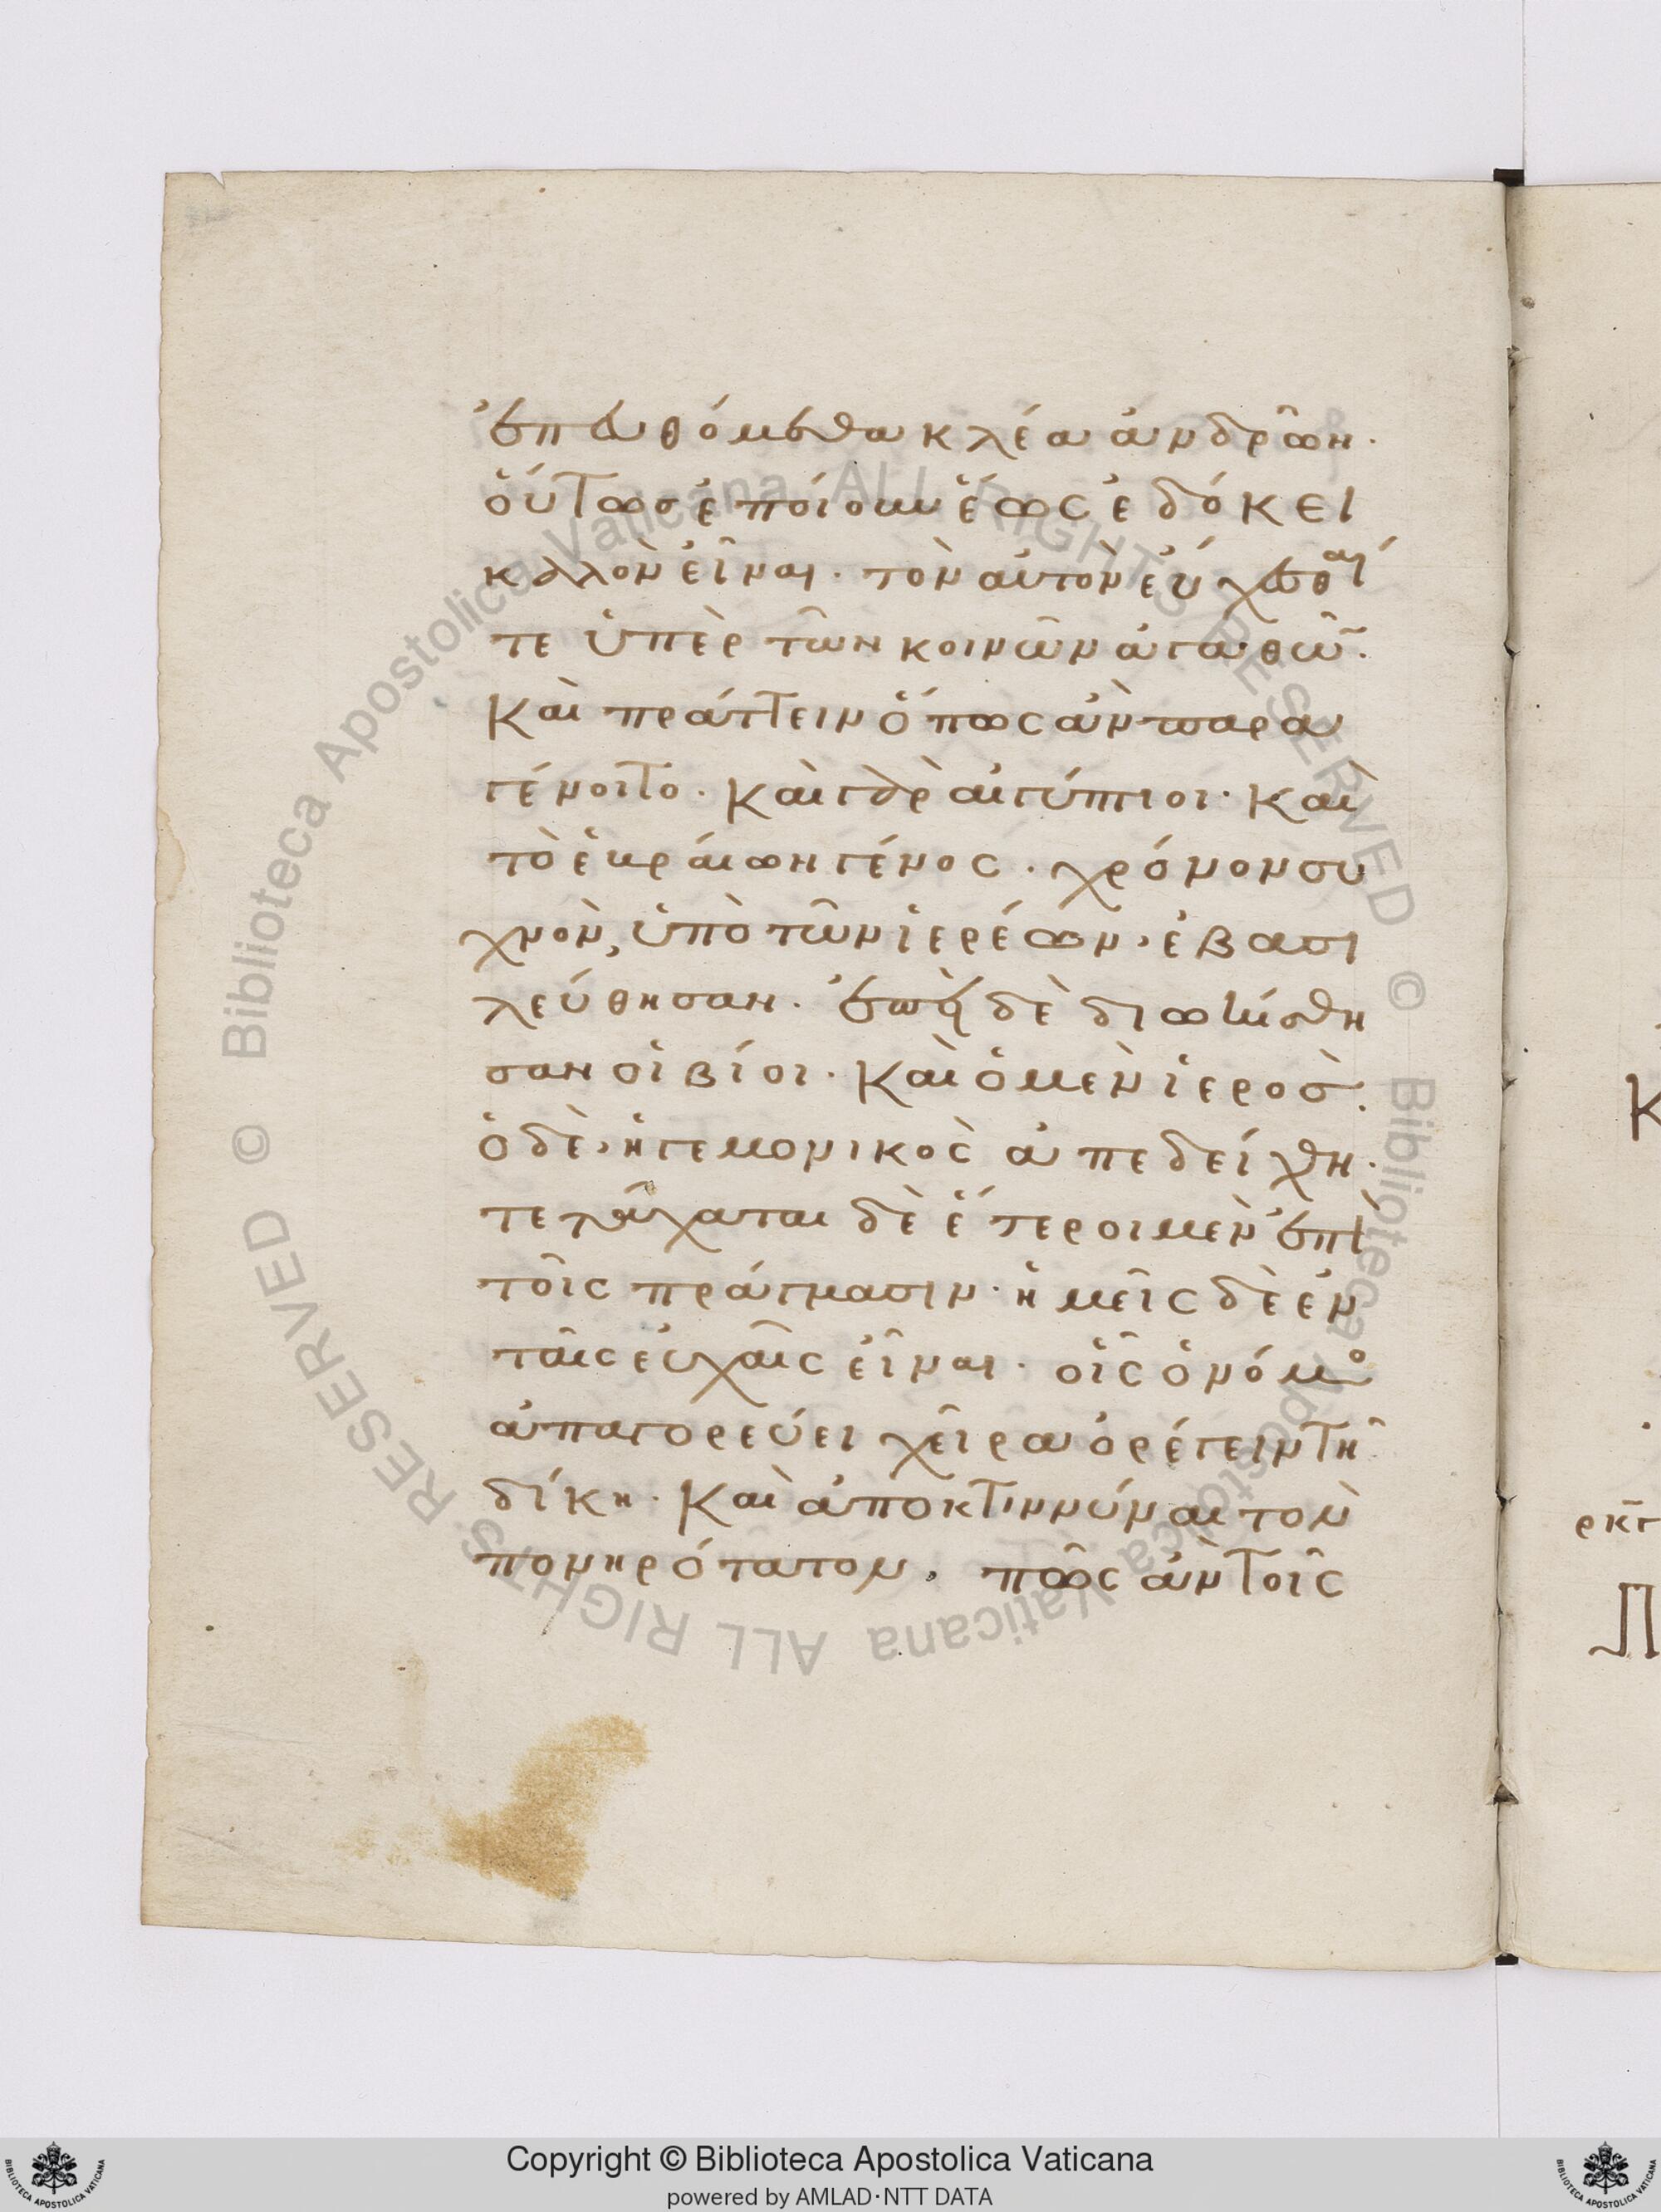 ἐπευθόμεθα κλέα ἀνδρῶν·
οὕτωσ ἐποίουν ἕως ἐδόκει
καλὸν εἶναι· τὸν αὐτὸν εὔχεσθαί
τε ὑπὲρ τῶν κοινῶν ἀγαθῶν·
Καὶ πράττειν ὅπως ἂν παρα
γένοιτο· Καὶ γὰρ αἰγύπτιοι· Καὶ
τὸ ἑβράιων γένος· χρόνον συ
χνὸν, ὑπὸ τῶν ἱερέων, ἐβασι
λεύθησαν· ἐπεὶ δὲ διῳκίσθη
σαν οἱ βίοι· Καὶ ὁ μὲν ἱεροσ·
ὁ δὲ, ἡγεμονικὸς ἀπεδείχθη·
τετάχαται δὲ ἕτεροι μὲν ἐπὶ
τοῖς πράγμασιν· ἡμεῖς δὲ ἐν
ταῖς εὐχαῖς εἶναι· οἷς ὁ νόμος
ἀπαγορεύει χεῖρα ὀρέγειν τῇ
δίκη· Καὶ ἀποκτιννύναι τὸν
πονηρότατον. πῶς ἂν τοῖς
Κ
ρκγ
Π
© Biblioteca Apostolica Vaticana ALL RIGHTS RESERVED
© Biblioteca Apostolica Vaticana ALL RIGHTS RESERVED
Copyright © Biblioteca Apostolica Vaticana
powered by AMLAD·NTT DATA
BIBLIOTECA APOSTOLICA VATICANA
BIBLIOTECA APOSTOLICA VATICANA